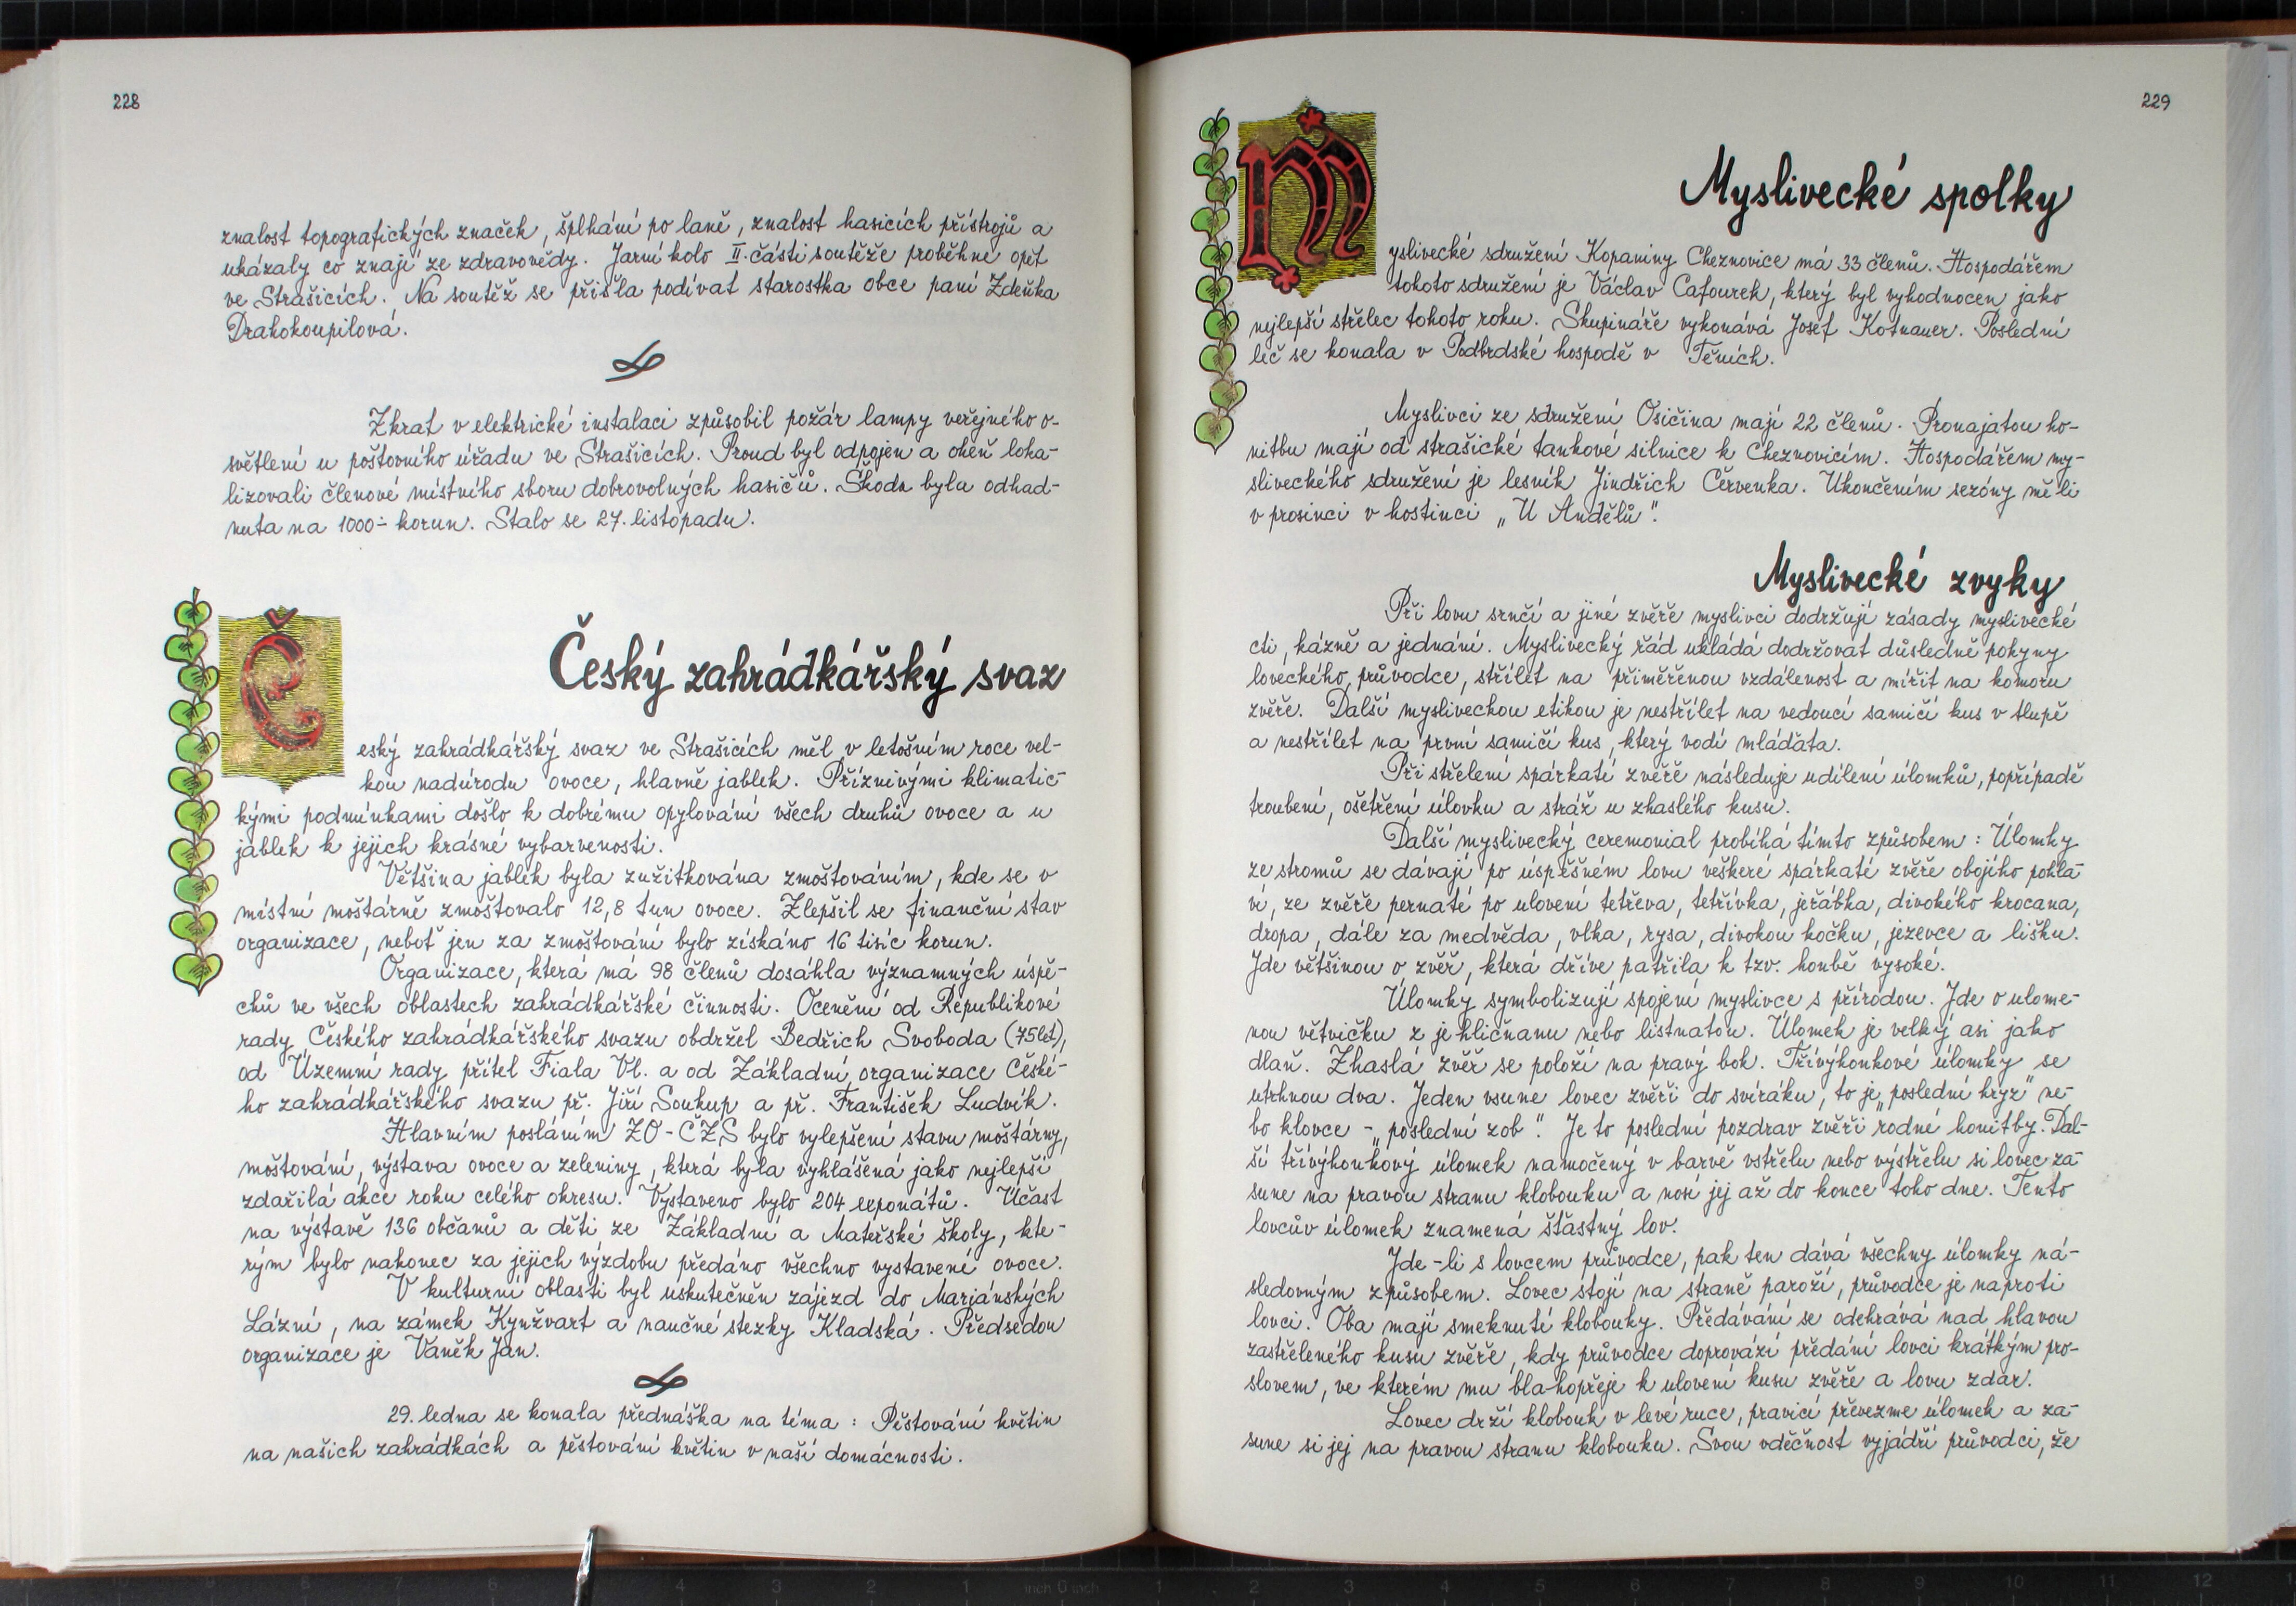 228
znalost topografických značek, šplhání po laně, znalost hasicích přístrojů a
ukázaly co znají ze zdravovědy. Jarní kolo II. části soutěže proběhne opět
ve Strašicích. Na soutěž se přišla podívat starostka obce paní Zdeňka
Drahokoupilová.
Zkrat v elektrické instalaci způsobil požár lampy veřejného o-
světlení u poštovního úřadu ve Strašicích. Proud byl odpojen a oheň loka-
lizovali členové místního sboru dobrovolných hasičů. Škoda byla odhad-
nuta na 1000.- korun. Stalo se 27. listopadu.
Český zahrádkářský svaz
Český zahrádkářský svaz ve Strašicích měl v letošním roce vel-
kou nadúrodu ovoce, hlavně jablek. Příznivými klimatic-
kými podmínkami došlo k dobrému opylování všech druhů ovoce a u
jablek k jejich krásné vybarvenosti.
Většina jablek byla zužitkována zmoštováním, kde se v
místní moštárně zmoštovalo 12,8 tun ovoce. Zlepšil se finanční stav
organizace, neboť jen za zmoštování bylo získáno 16 tisíc korun.
Organizace, která má 98 členů dosáhla významných úspě-
chů ve všech oblastech zahrádkářské činnosti. Ocenění od Republikové
rady Českého zahrádkářského svazu obdržel Bedřich Svoboda (75 let),
od Územní rady přítel Fiala Vl. a od Základní organizace České-
ho zahrádkářského svazu př. Jiří Soukup a př. František Ludvík.
Hlavním posláním ZO-ČZS bylo vylepšení stavu moštárny,
moštování, výstava ovoce a zeleniny, která byla vyhlášená jako nejlepší
zdařilá akce roku celého okresu. Vystaveno bylo 204 exponátů. Účast
na výstavě 136 občanů a dětí ze Základní a Mateřské školy, kte-
rým bylo nakonec za jejich výzdobu předáno všechno vystavené ovoce.
V kulturní oblasti byl uskutečněn zájezd do Mariánských
Lázní, na zámek Kynžvart a naučné stezky Kladská. Předsedou
organizace je Vaněk Jan.
29. ledna se konala přednáška na téma: Pěstování květin
na našich zahrádkách a pěstování květin v naší domácnosti.
229
Myslivecké spolky
Myslivecké sdružení Kopaniny Cheznovice má 33 členů. Hospodářem
tohoto sdružení je Václav Cafourek, který byl vyhodnocen jako
nejlepší střelec tohoto roku. Skupináře vykonává Josef Kotnauer. Poslední
leč se konala v Podbrdské hospodě v Těních.
Myslivci ze sdružení Osičina mají 22 členů. Pronajatou ho-
nitbu mají od strašické tankové silnice k Cheznovicím. Hospodářem my-
sliveckého sdružení je lesník Jindřich Červenka. Ukončením sezóny měli
v prosinci v hostinci „U Andělů".
Myslivecké zvyky
Při lovu srnčí a jiné zvěře myslivci dodržují zásady myslivecké
cti, kázně a jednání. Myslivecký řád ukládá dodržovat důsledně pokyny
loveckého průvodce, střílet na přiměřenou vzdálenost a mířit na komoru
zvěře. Další mysliveckou etikou je nestřílet na vedoucí samičí kus v tlupě
a nestřílet na první samičí kus, který vodí mláďata.
Při střelení spárkaté zvěře následuje udílení úlomků, popřípadě
troubení, ošetření úlovku a stráž u zhaslého kusu.
Další myslivecký ceremonial probíhá tímto způsobem: Úlomky
ze stromů se dávají po úspěšném lovu veškeré spárkaté zvěře obojího pohla-
ví, ze zvěře pernaté po ulovení tetřeva, tetřívka, jeřábka, divokého krocana,
dropa, dále za medvěda, vlka, rysa, divokou kočku, jezevce a lišku.
Jde většinou o zvěř, která dříve patřila k tzv. honbě vysoké.
Úlomky symbolizují spojení myslivce s přírodou. Jde o ulome-
nou větvičku z jehličnanu nebo listnatou. Úlomek je velký asi jako
dlaň. Zhaslá zvěř se položí na pravý bok. Třívýhonkové úlomky se
utrhnou dva. Jeden vsune lovec zvěři do svíráku, to je „poslední hryz" ne-
bo klovce - „poslední zob". Je to poslední pozdrav zvěři rodné honitby. Dal-
ší třívýhonkový úlomek namočený v barvě vstřelu nebo výstřelu si lovec za-
sune na pravou stranu klobouku a nosí jej až do konce toho dne. Tento
lovcův úlomek znamená šťastný lov.
Jde-li s lovcem průvodce, pak ten dává všechny úlomky ná-
sledovným způsobem. Lovec stojí na straně paroží, průvodce je naproti
lovci. Oba mají smeknuté klobouky. Předávání se odehrává nad hlavou
zastřeleného kusu zvěře, kdy průvodce doprovází předání lovci krátkým pro-
slovem, ve kterém mu blahopřeje k ulovení kusu zvěře a lovu zdar.
Lovec drží klobouk v levé ruce, pravicí převezme úlomek a za-
sune si jej na pravou stranu klobouku. Svou vděčnost vyjádří průvodci, že